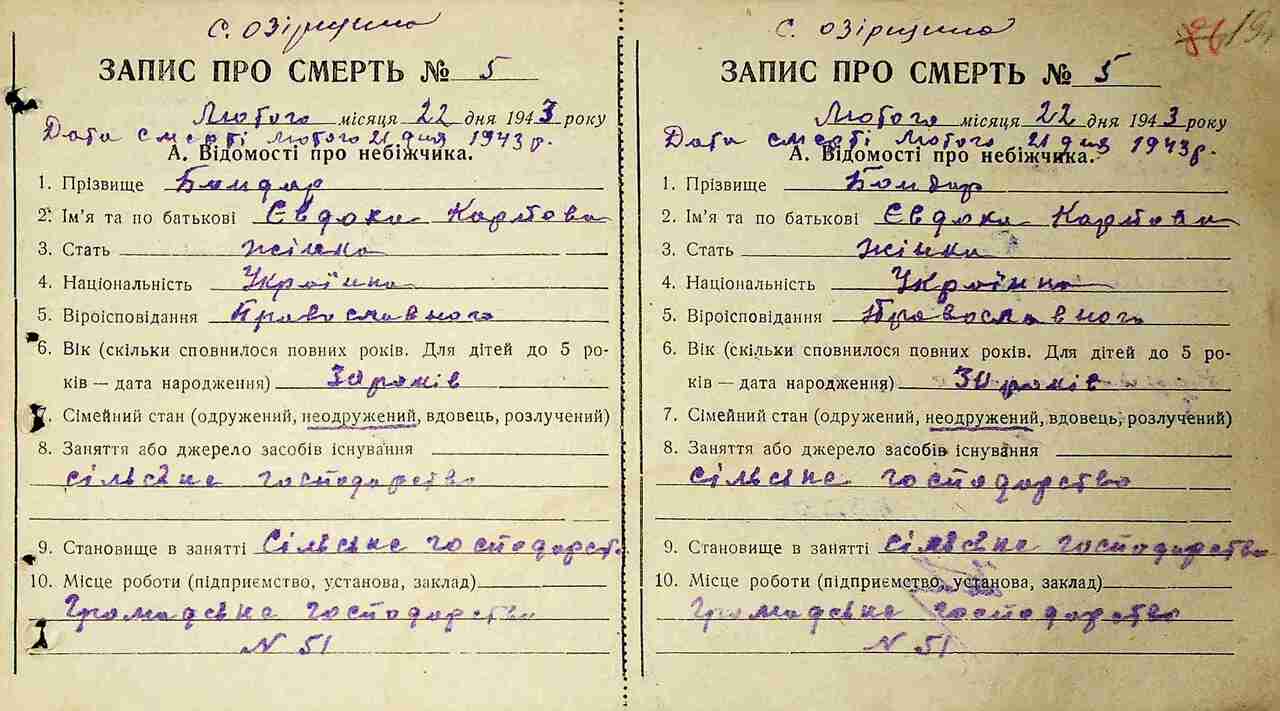 с. Озірщина
ЗАПИС ПРО СМЕРТЬ № 5
Лютого місяця 22 дня 1943 року
Дата смерті Лютого 21 дня 1943 р.
А. Відомості про небіжчика.
1. Прізвище Бондар
2. Ім'я та по батькові Євдоки Карпова
3. Стать жінка
4. Національність Українка
5. Віроісповідання Православного
6. Вік (скільки сповнилося повних років. Для дітей до 5 ро-
ків — дата народження) 30 років
7. Сімейний стан (одружений, неодружений, вдовець, розлучений)
8. Заняття або джерело засобів існування
сільське господарство
9. Становище в занятті Сільське господарств
10. Місце роботи (підприємство, установа, заклад)
Громадське господарство
N 51
с. Озірщина
86 19
ЗАПИС ПРО СМЕРТЬ № 5
Лютого місяця 22 дня 1943 року
Дата смерті Лютого 21 дня 1943 р.
А. Відомості про небіжчика.
1. Прізвище Бондар
2. Ім'я та по батькові Євдоки Карпови
3. Стать жінка
4. Національність Українка
5. Віроісповідання Православного
6. Вік (скільки сповнилося повних років. Для дітей до 5 ро-
ків — дата народження) 30 років
7. Сімейний стан (одружений, неодружений, вдовець, розлучений)
8. Заняття або джерело засобів існування
сільське господарство
9. Становище в занятті Сільське господарство
10. Місце роботи (підприємство, установа, заклад)
Громадське господарство
N 51